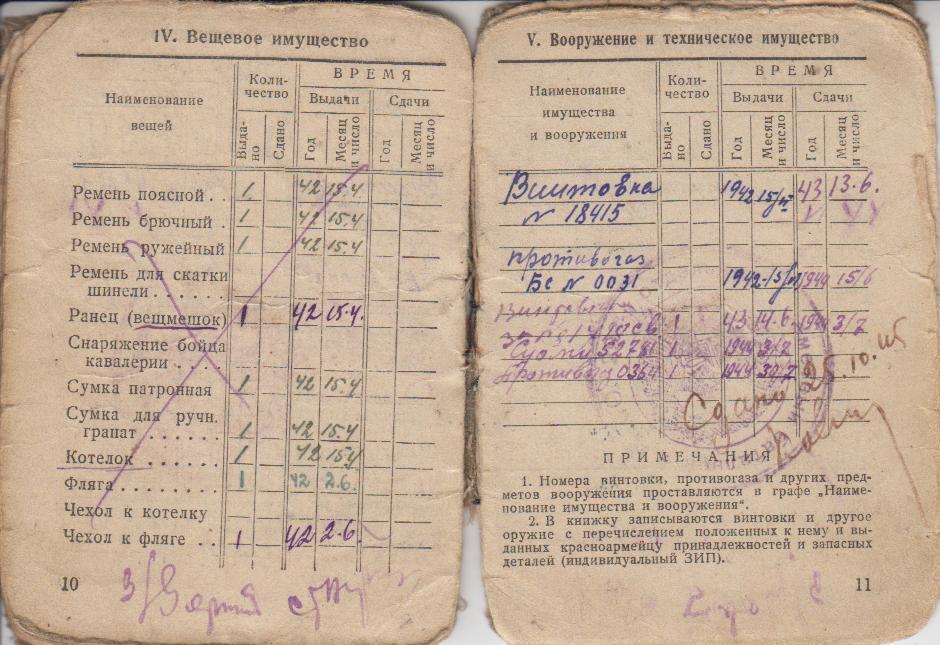 IV. Вещевое имущество
Наименование вещей
Коли-
чество
ВРЕМЯ
Выдачи
Сдачи
Выда-
но
Сдано
Год
Месяц
и число
Год
Месяц
и число
Ремень поясной . . 1 42 15.4
Ремень брючный . 1 42 15.4
Ремень ружейный 1 42 15.4
Ремень для скатки
шинели . . . . . .
Ранец (вещмешок) 1 42 15.4
Снаряжение бойца
кавалерии . . .
Сумка патронная 1 42 15.4
Сумка для ручн.
гранат . . . . . . 1 42 15.4
Котелок . . . . . . 1 42 15.4
Фляга . . . . . . . . 1 42 2.6.
Чехол к котелку
Чехол к фляге . . 1 42 2.6
10
V. Вооружение и техническое имущество
Наименование
имущества
и вооружения
Коли-
чество
ВРЕМЯ
Выдачи
Сдачи
Выда-
но
Сдано
Год
Месяц
и число
Год
Месяц
и число
Винтовка 1942 43 13.6.
№ 18415
противогаз
Бс № 0031 1942 1944 15/6
1 43 14.6 1944 3/7
1 1944 3/7
0364 1 1944 30/7
Сдано 25.10.45
ПРИМЕЧАНИЯ
1. Номера винтовки, противогаза и других пред-
метов вооружения проставляются в графе „Наиме-
нование имущества и вооружения".
2. В книжку записываются винтовки и другое
оружие с перечислением положенных к нему и вы-
данных красноармейцу принадлежностей и запасных
деталей (индивидуальный ЗИП).
11